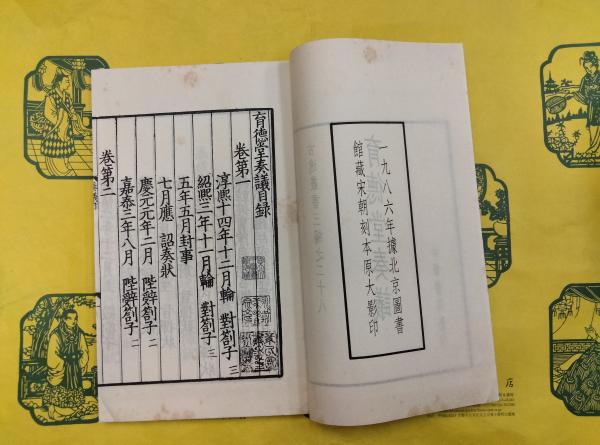 一九八六年據北京圖書
館藏宋朝刻本原大影印
育德堂奏議目錄
卷第一
淳熙十四年十二月輪 對劄子 三
紹熙三年十一月輪 對劄子 三
五年五月封事
七月應 詔奏狀
慶元元年二月 陛辭劄子 二
嘉泰三年八月 陛辭劄子 二
卷第二
育德堂奏議
古逸叢書三編之二十八
店